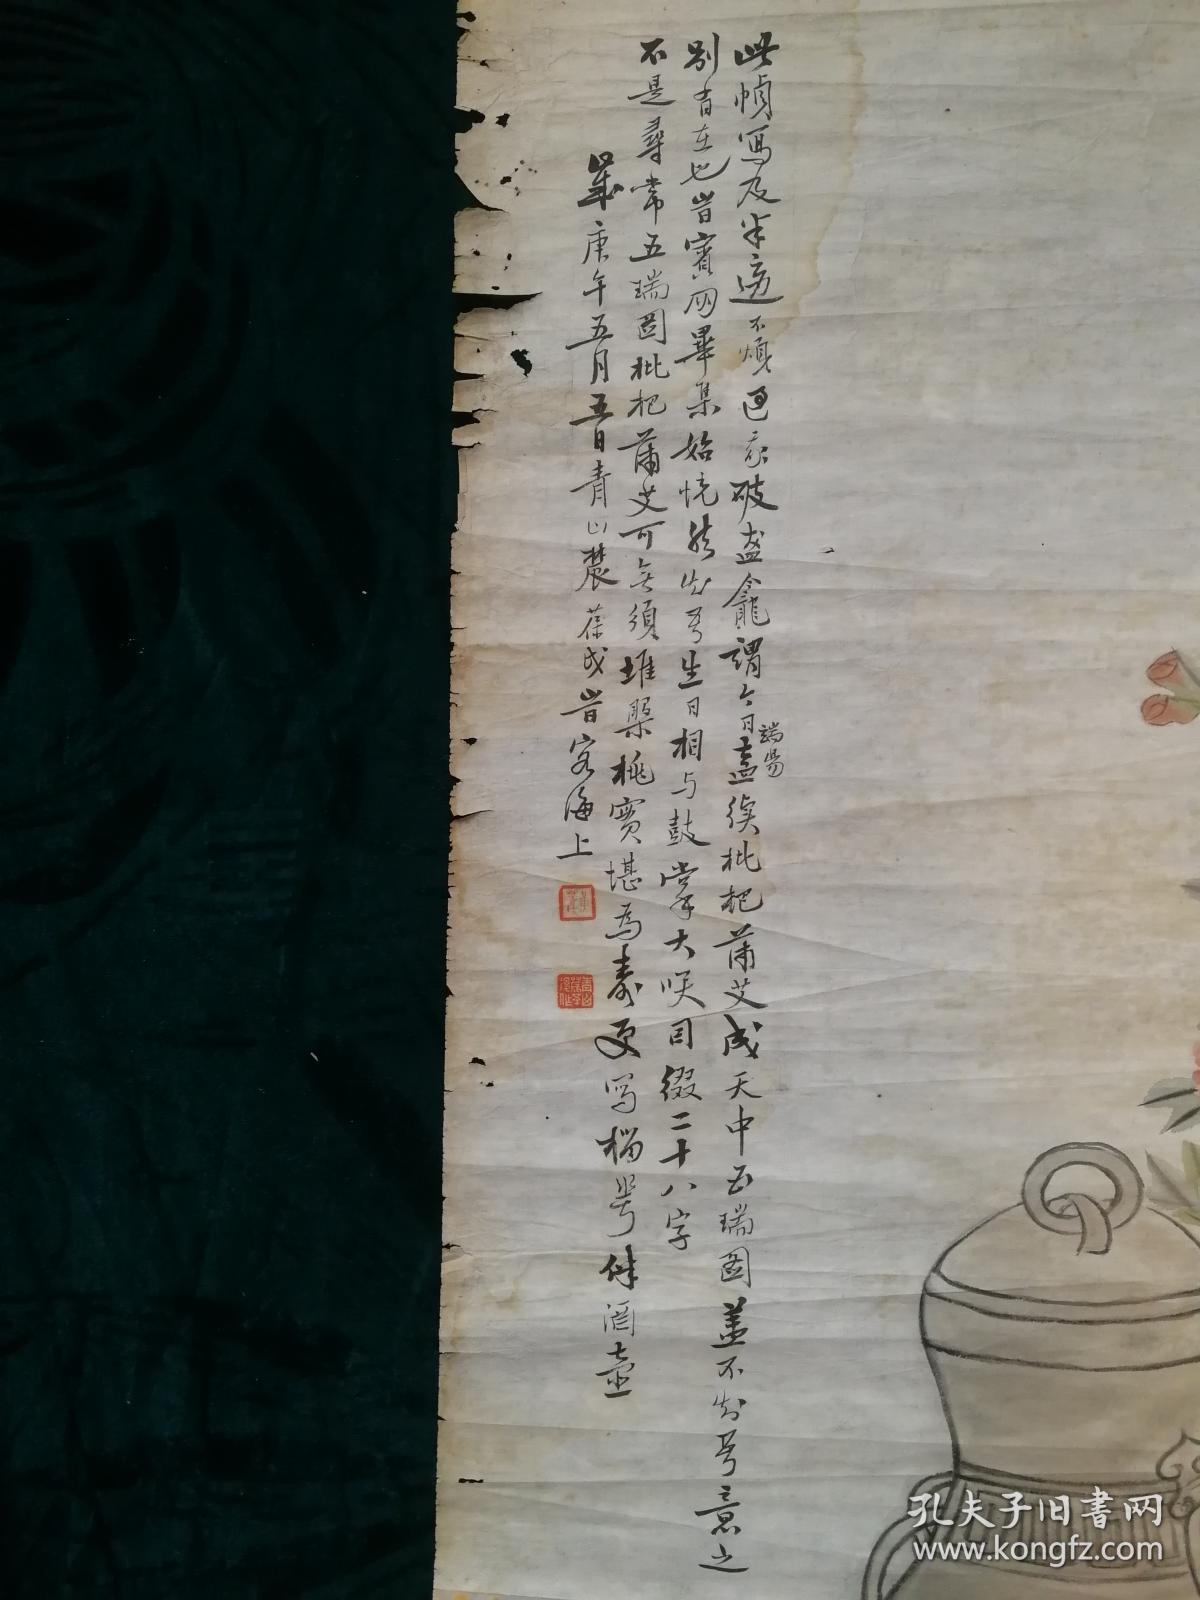 此幀寫及半適不煩過家破盦龕謂今日端陽盍篌枇杷蒲艾成天中五瑞圖蓋不知吾意之
別有在也昔賓朋畢集始恍然知吾生日相與鼓掌大咲因綴二十八字
不是尋常五瑞圖枇杷蒲艾可無須堆槃桃實堪為壽更寫榴花伴酒壺
歲庚午五月五日青山農葆戉昔客海上
孔夫子旧书网
www.kongfz.com